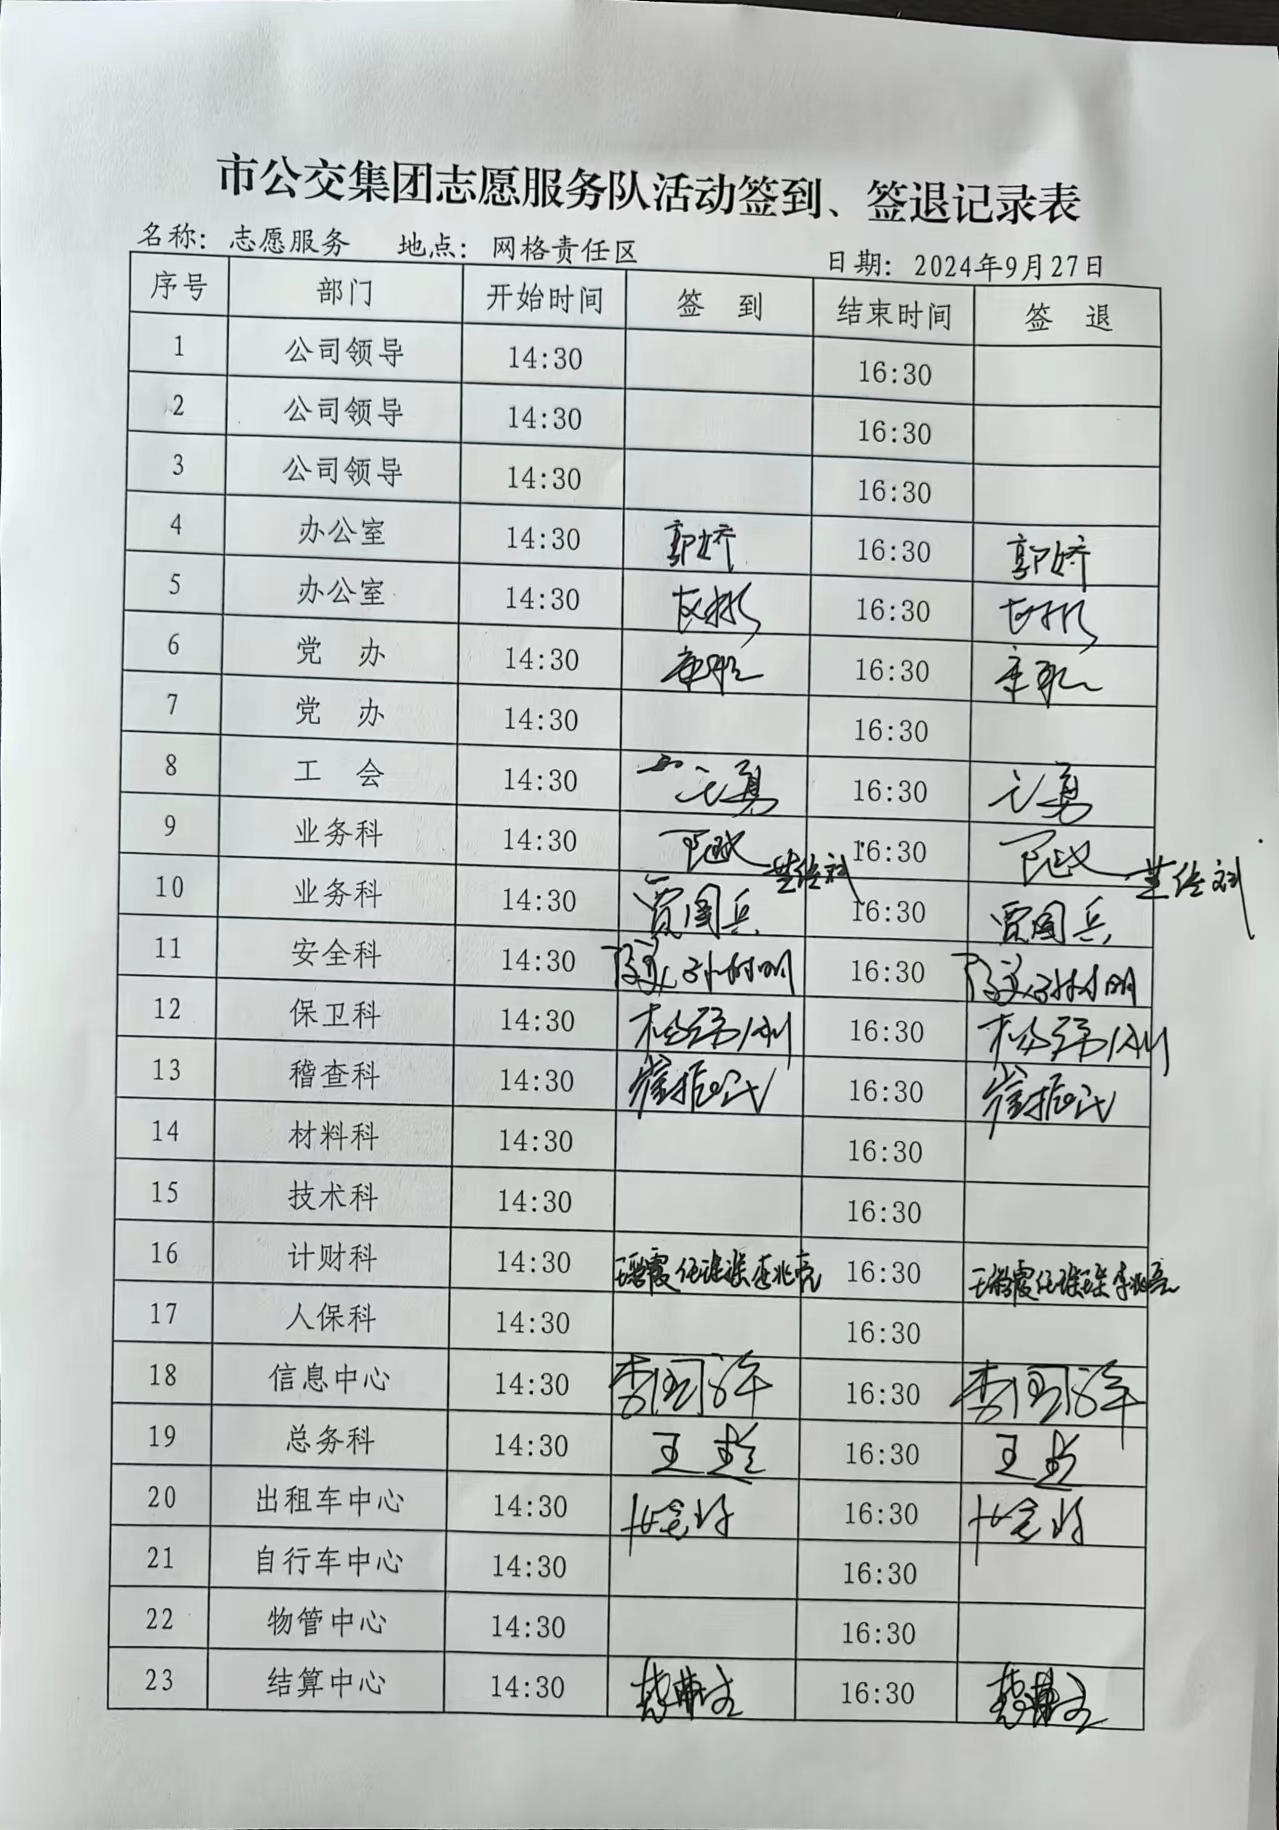 市公交集团志愿服务队活动签到、签退记录表
名称：志愿服务 地点：网格责任区 日期：2024年9月27日
序号 部门 开始时间 签 到 结束时间 签 退
1 公司领导 14:30 16:30
2 公司领导 14:30 16:30
3 公司领导 14:30 16:30
4 办公室 14:30 郭娇 16:30 郭娇
5 办公室 14:30 16:30
6 党 办 14:30 16:30
7 党 办 14:30 16:30
8 工 会 14:30 16:30
9 业务科 14:30 16:30
10 业务科 14:30 贾国兵 16:30 贾国兵
11 安全科 14:30 孙树明 16:30 孙树明
12 保卫科 14:30 16:30
13 稽查科 14:30 16:30
14 材料科 14:30 16:30
15 技术科 14:30 16:30
16 计财科 14:30 16:30
17 人保科 14:30 16:30
18 信息中心 14:30 16:30
19 总务科 14:30 王 16:30 王
20 出租车中心 14:30 16:30
21 自行车中心 14:30 16:30
22 物管中心 14:30 16:30
23 结算中心 14:30 16:30